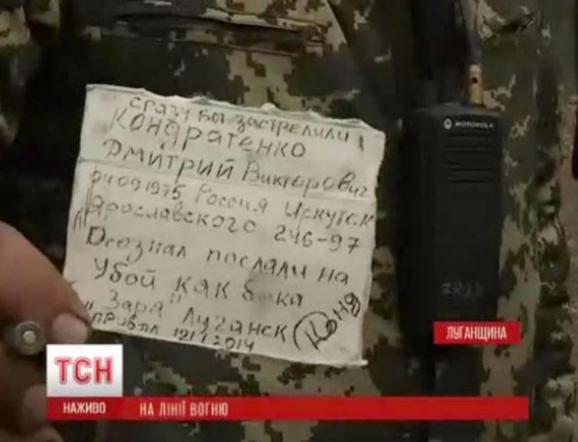 сразу бы застрелили
Кондратенко
Дмитрий Викторович
04091975 Россия Иркутск
Ярославского 246-97
Осознал послали на
Убой как быка
"Заря" Луганск
Конд
прибыл
2014
MOTOROLA
ЛУГАНЩИНА
ТСН
НАЖИВО
НА ЛІНІЇ ВОГНЮ